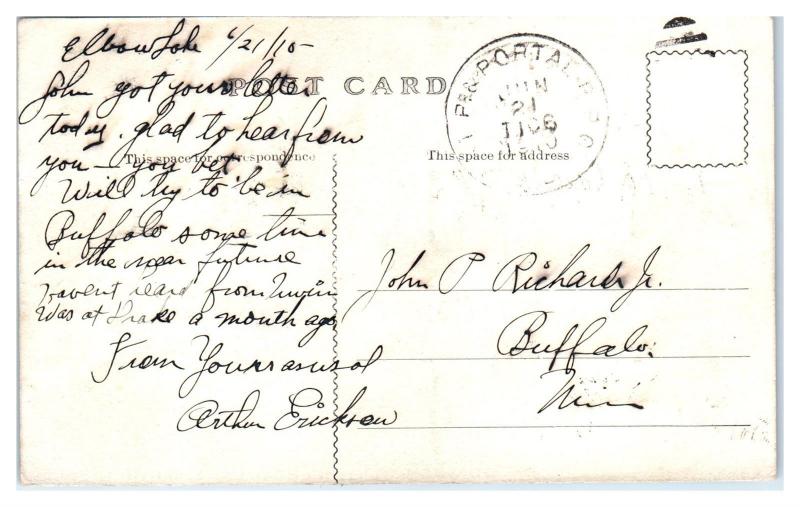 Elbow Lake 6/21/10-
POST CARD
John got your letter
today. glad to hear from
you - you bet
This space for correspondence
This space for address
Will try to be in
Buffalo some time
in the near future
havent heard from
Was at Drake a month ago
From Yours as usual
Arthur Erickson
PORTAL
JUN
21
1910
John P Richards Jr.
Buffalo.
Minn